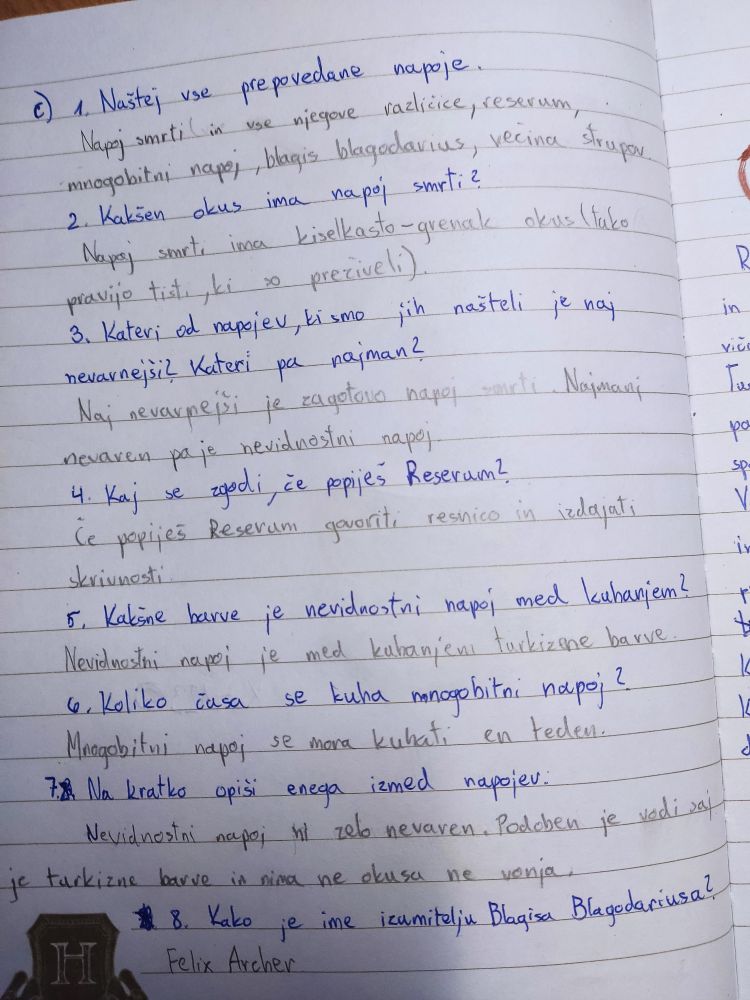 c) 1. Naštej vse prepovedane napoje.
Napoj smrti (in vse njegove različice, reserum,
mnogobitni napoj, blagis blagodarius, večina strupov.
2. Kakšen okus ima napoj smrti?
Napoj smrti ima kiselkasto-grenak okus (tako
pravijo tisti, ki so preživeli).
3. Kateri od napojev, ki smo jih našteli je naj
nevarnejši? Kateri pa najman?
Naj nevarnejši je zagotovo napoj smrti. Najmanj
nevaren pa je nevidnostni napoj.
4. Kaj se zgodi, če popiješ Reserum?
Če popiješ Reserum govoriti resnico in izdajati
skrivnosti.
5. Kakšne barve je nevidnostni napoj med kuhanjem?
Nevidnostni napoj je med kuhanjem turkizne barve.
6. Koliko časa se kuha mnogobitni napoj?
Mnogobitni napoj se mora kuhati en teden.
7. Na kratko opiši enega izmed napojev.
Nevidnostni napoj ni zelo nevaren. Podoben je vodi saj
je turkizne barve in nima ne okusa ne vonja.
8. Kako je ime izumitelju Blagisa Blagodariusa?
Felix Archer
H
R
in